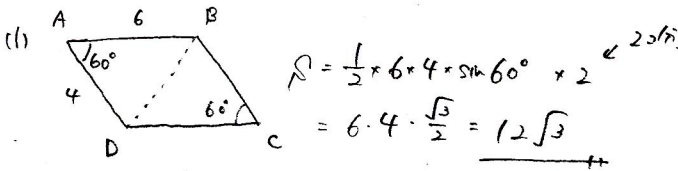 (1)
A 6 B
60°
4
60°
D C
S = 1/2 × 6 × 4 × sin 60° × 2
= 6・4・√3/2 = 12√3